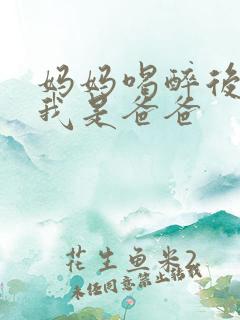 妈妈喝醉後
我是爸爸
花生鱼米2
未经同意禁止转载